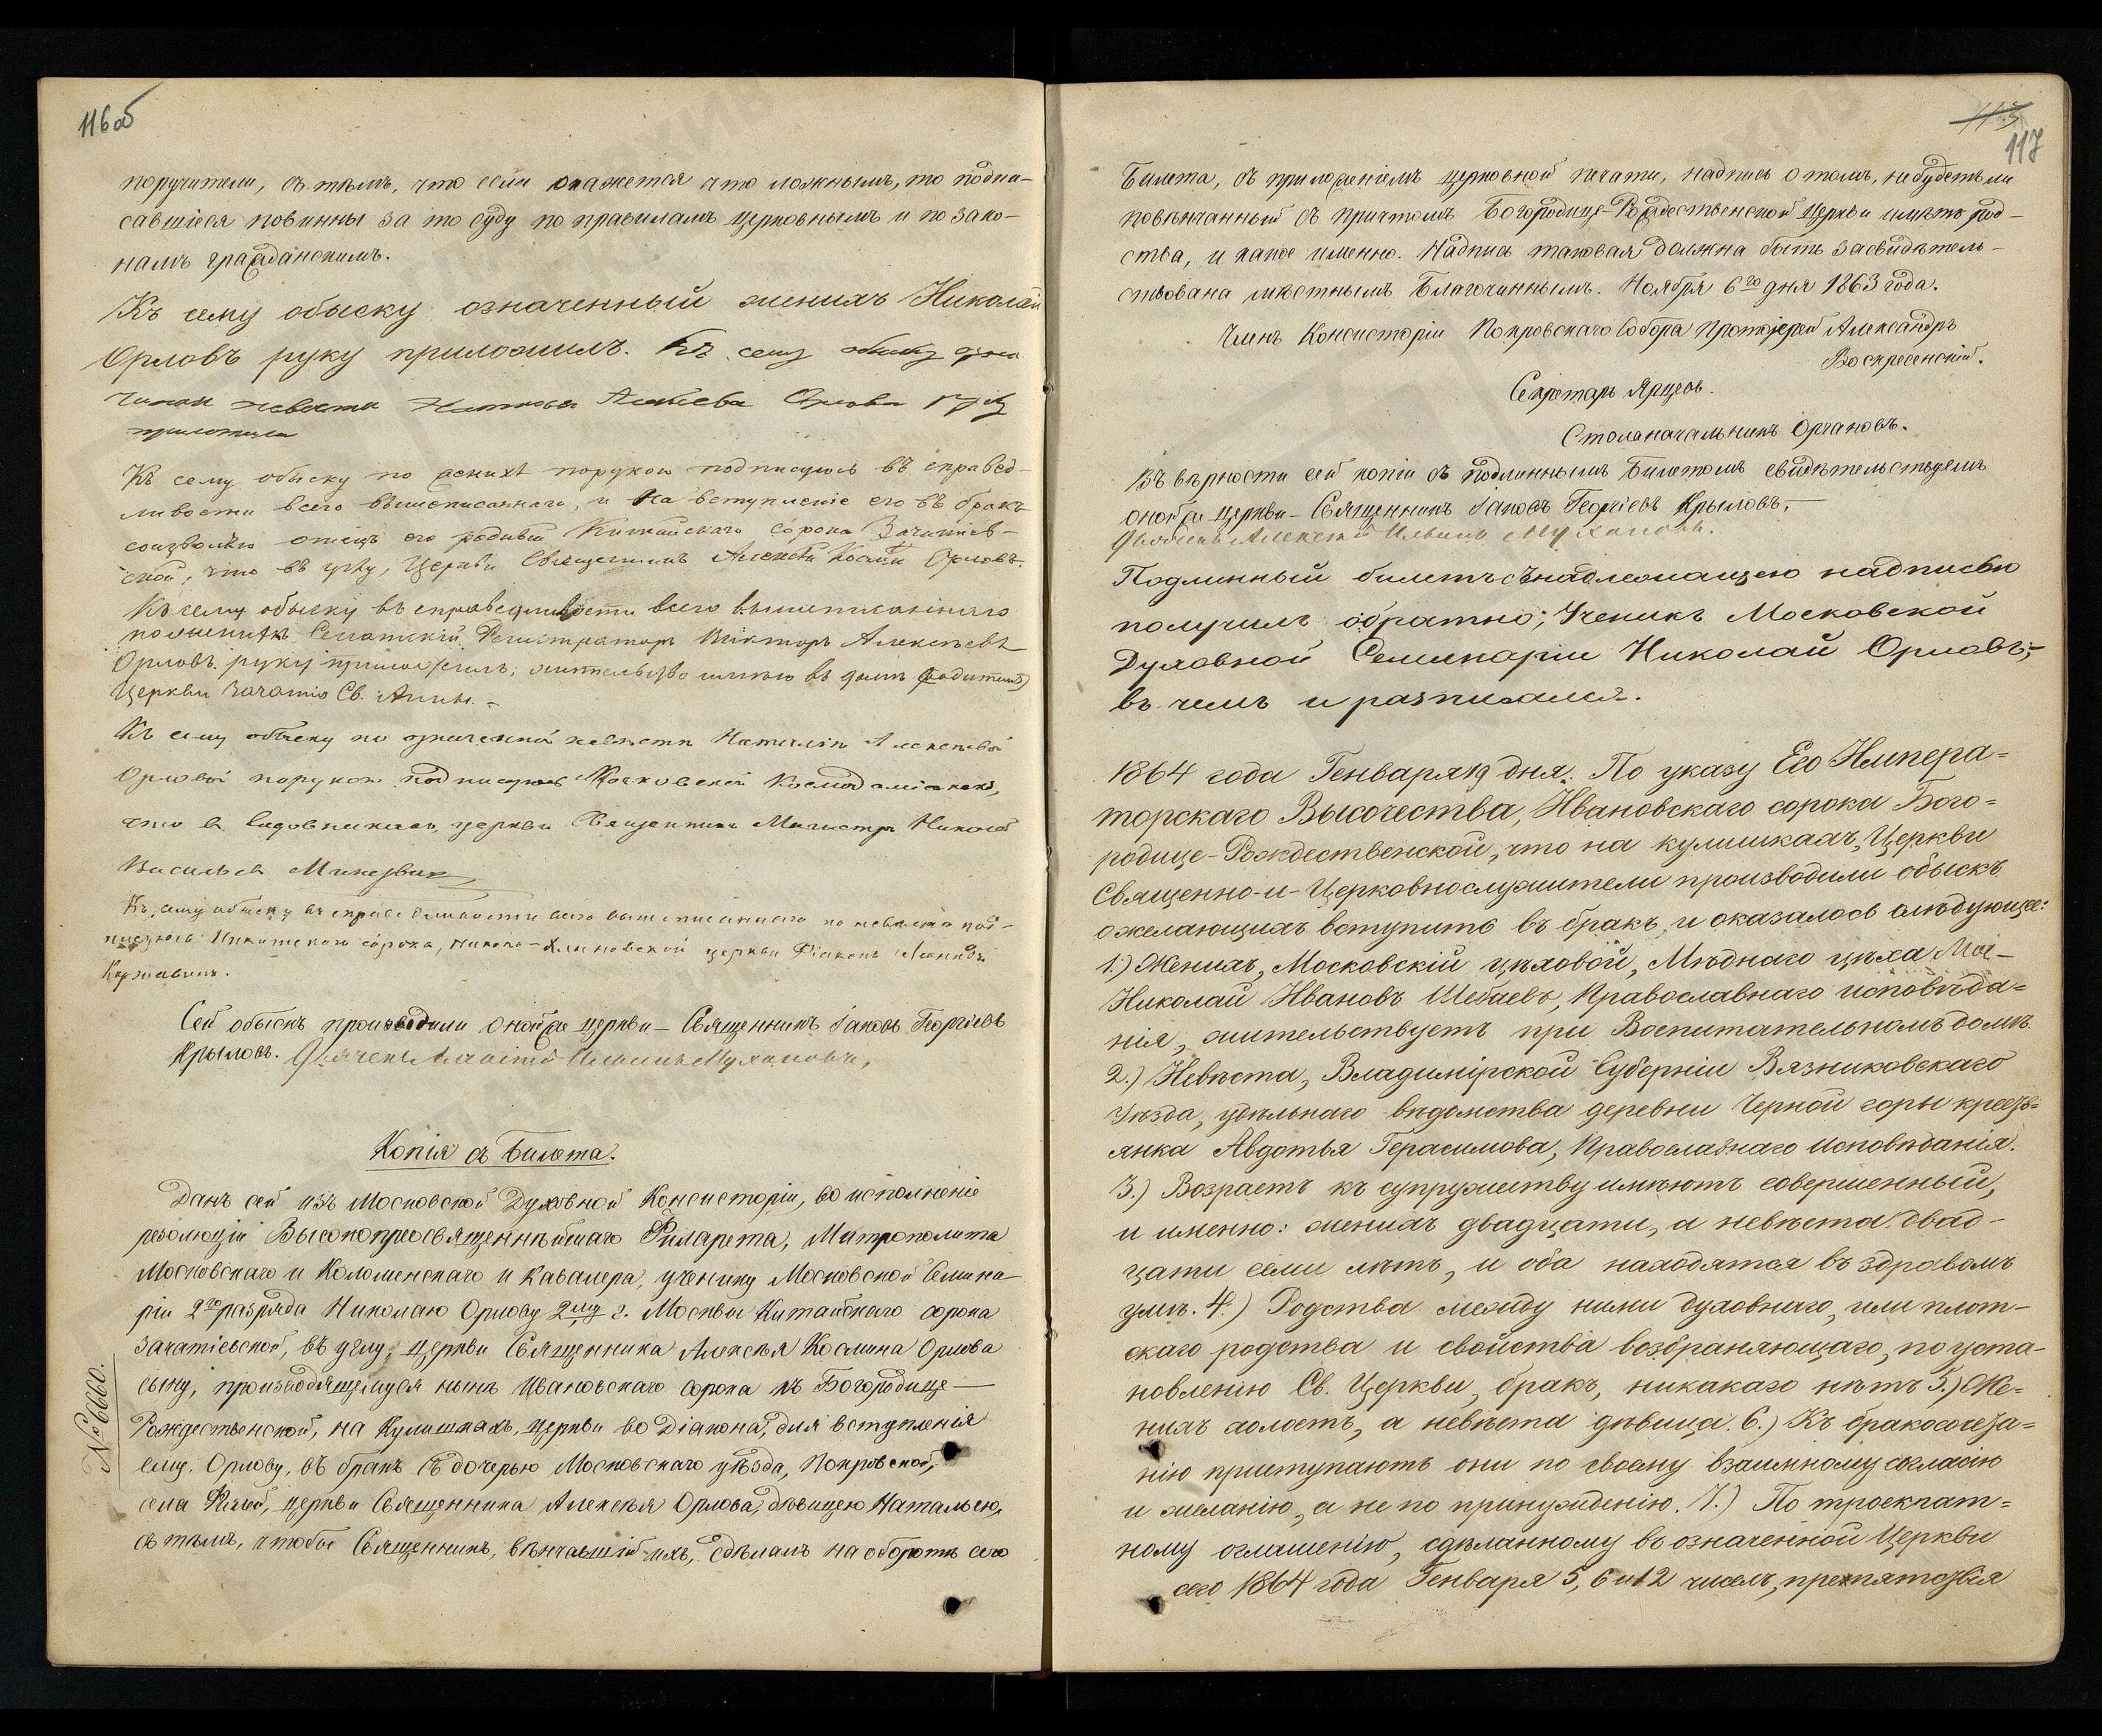 116 об
поручители, съ тѣмъ, что если окажется что ложнымъ, то подпи-
савшіеся повинны за то суду по правиламъ церковнымъ и по зако-
намъ гражданскимъ.
Къ сему обыску означенный женихъ Николай
Орловъ руку приложилъ. Къ сему обыску
невѣста Орлова руку
приложила
Къ сему обыску по женихѣ порукою подписуюсь въ справед-
ливости всего вышеписаннаго, и на вступленіе его въ бракъ
соизволяю отецъ его родный Китайскаго сорока Зачатіев-
ской, что въ углу, Церкви Священникъ Алексѣй Косминъ Орловъ.
Къ сему обыску въ справедливости всего вышеписаннаго
по женихѣ Сенатскій Регистраторъ Викторъ Алексѣевъ
Орловъ руку приложилъ; жительство имѣю въ домѣ родителя
Церкви Зачатія Св. Анны. –
Къ сему обыску по означенной невѣстѣ Наталіи Алексѣевой
Орловой порукою подписуюсь Московской Космодаміанской,
что въ Садовникахъ, церкви Священникъ Магистръ Николай
Васильевъ
Къ сему обыску въ справедливости всего вышеписаннаго по невѣстѣ под-
писуюсь Никитскаго сорока, Николо-Хлыновской церкви Діаконъ Леонидъ
Сей обыскъ производили оной же церкви – Священникъ Іаковъ Георгіевъ
Крыловъ. Дьячекъ Алексій Ильинъ Мухановъ,
Копія съ Билета.
Данъ сей изъ Московской Духовной Консисторіи, во исполненіе
резолюціи Высокопреосвященнѣйшаго Филарета, Митрополита
Московскаго и Коломенскаго и Кавалера, ученику Московской Семина-
ріи 2го разряда Николаю Орлову 2му г. Москвы Китайскаго сорока
Зачатіевской, въ углу, церкви Священника Алексѣя Космина Орлова
сыну, производящемуся нынѣ Ивановскаго сорока къ Богородице-
Рождественской, на Кулишкахъ, церкви во Діакона, для вступленія
ему, Орлову, въ бракъ съ дочерью Московскаго уѣзда, Покровской,
села Филей, церкви Священника Алексѣя Орлова, дѣвицею Натальею,
съ тѣмъ, чтобы Священникъ, вѣнчавшій ихъ, сдѣлалъ на оборотѣ сего
№ 6660.
113
117
Билета, съ приложеніемъ церковной печати, надпись о томъ, не будетъ ли
повѣнчанный съ причтомъ Богородице-Рождественской церкви имѣть род-
ства, и какое именно. Надпись таковая должна быть засвидѣтель-
ствована мѣстнымъ Благочиннымъ. Ноября 6го дня 1863 года.
Членъ Консисторіи Покровскаго Собора Протоіерей Александръ
Воскресенскій.
Секретарь Ярцевъ.
Столоначальникъ Органовъ.
Въ вѣрности сей копіи съ подлиннымъ Билетомъ свидѣтельствуемъ
оной же церкви – Священникъ Іаковъ Георгіевъ Крыловъ, –
Дьячекъ Алексѣй Ильинъ Мухановъ.
Подлинный билетъ съ надлежащею надписью
получилъ обратно; Ученикъ Московской
Духовной Семинаріи Николай Орловъ; –
въ чемъ и разписался.
1864 года Генваря 19 дня. По указу Его Импера=
торскаго Высочества, Ивановскаго сорока Бого=
родице-Рождественской, что на кулишкахъ, Церкви
Священно-и-Церковнослужители производили обыскъ
о желающихъ вступить въ бракъ, и оказалось слѣдующее:
1.) Женихъ, Московскій цѣховой, Мѣднаго цѣха
Николай Ивановъ Шебаевъ, Православнаго исповѣда=
нія, жительствуетъ при Воспитательномъ домѣ.
2.) Невѣста, Владимірской Губерніи Вязниковскаго
Уѣзда, удѣльнаго вѣдомства деревни Черной горы кресть=
янка Авдотья Герасимова, Православнаго исповѣданія.
3.) Возрастъ къ супружеству имѣютъ совершенный,
и именно: женихъ двадцати, а невѣста двад-
цати семи лѣтъ, и оба находятся въ здравомъ
умѣ. 4.) Родства между ними духовнаго, или плот-
скаго родства и свойства возбраняющаго, по уста-
новленію Св. Церкви, бракъ, никакаго нѣтъ 5.) Же=
нихъ холостъ, а невѣста дѣвица. 6.) Къ бракосочета=
нію приступаютъ они по своему взаимному согласію
и желанію, а не по принужденію. 7.) По троекрат=
ному оглашенію, сдѣланному въ означенной Церкви
сего 1864 года Генваря 5, 6 и 12 чиселъ, препятствія